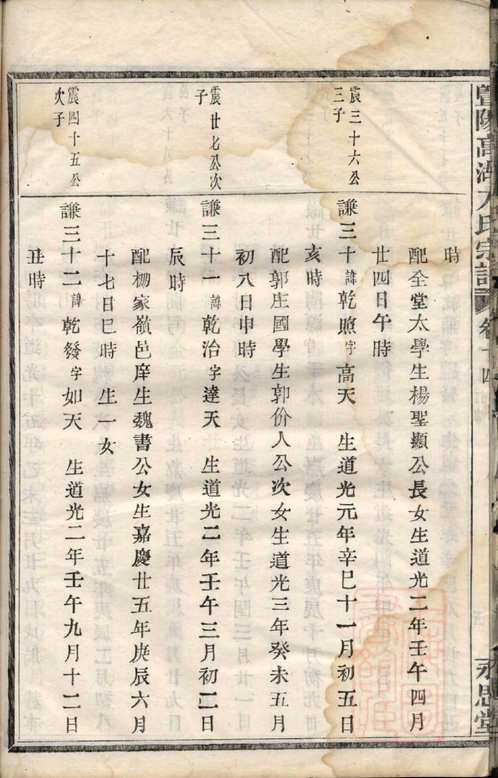 暨陽高湖方氏宗譜 卷十四
永思堂
時
配全堂太學生楊聖顯公長女生道光二年壬午四月
廿四日午時
震三十六公三子
謙三十諱乾照字高天 生道光元年辛巳十一月初五日
亥時
配郭庄國學生郭份人公次女生道光三年癸未五月
初八日申時
震廿七公次子
謙三十一諱乾治字達天 生道光二年壬午三月初二日
辰時
配楊家嶺邑庠生魏書公女生嘉慶廿五年庚辰六月
十七日巳時 生一女
震四十五公次子
謙三十二諱乾發字如天 生道光二年壬午九月十二日
丑時